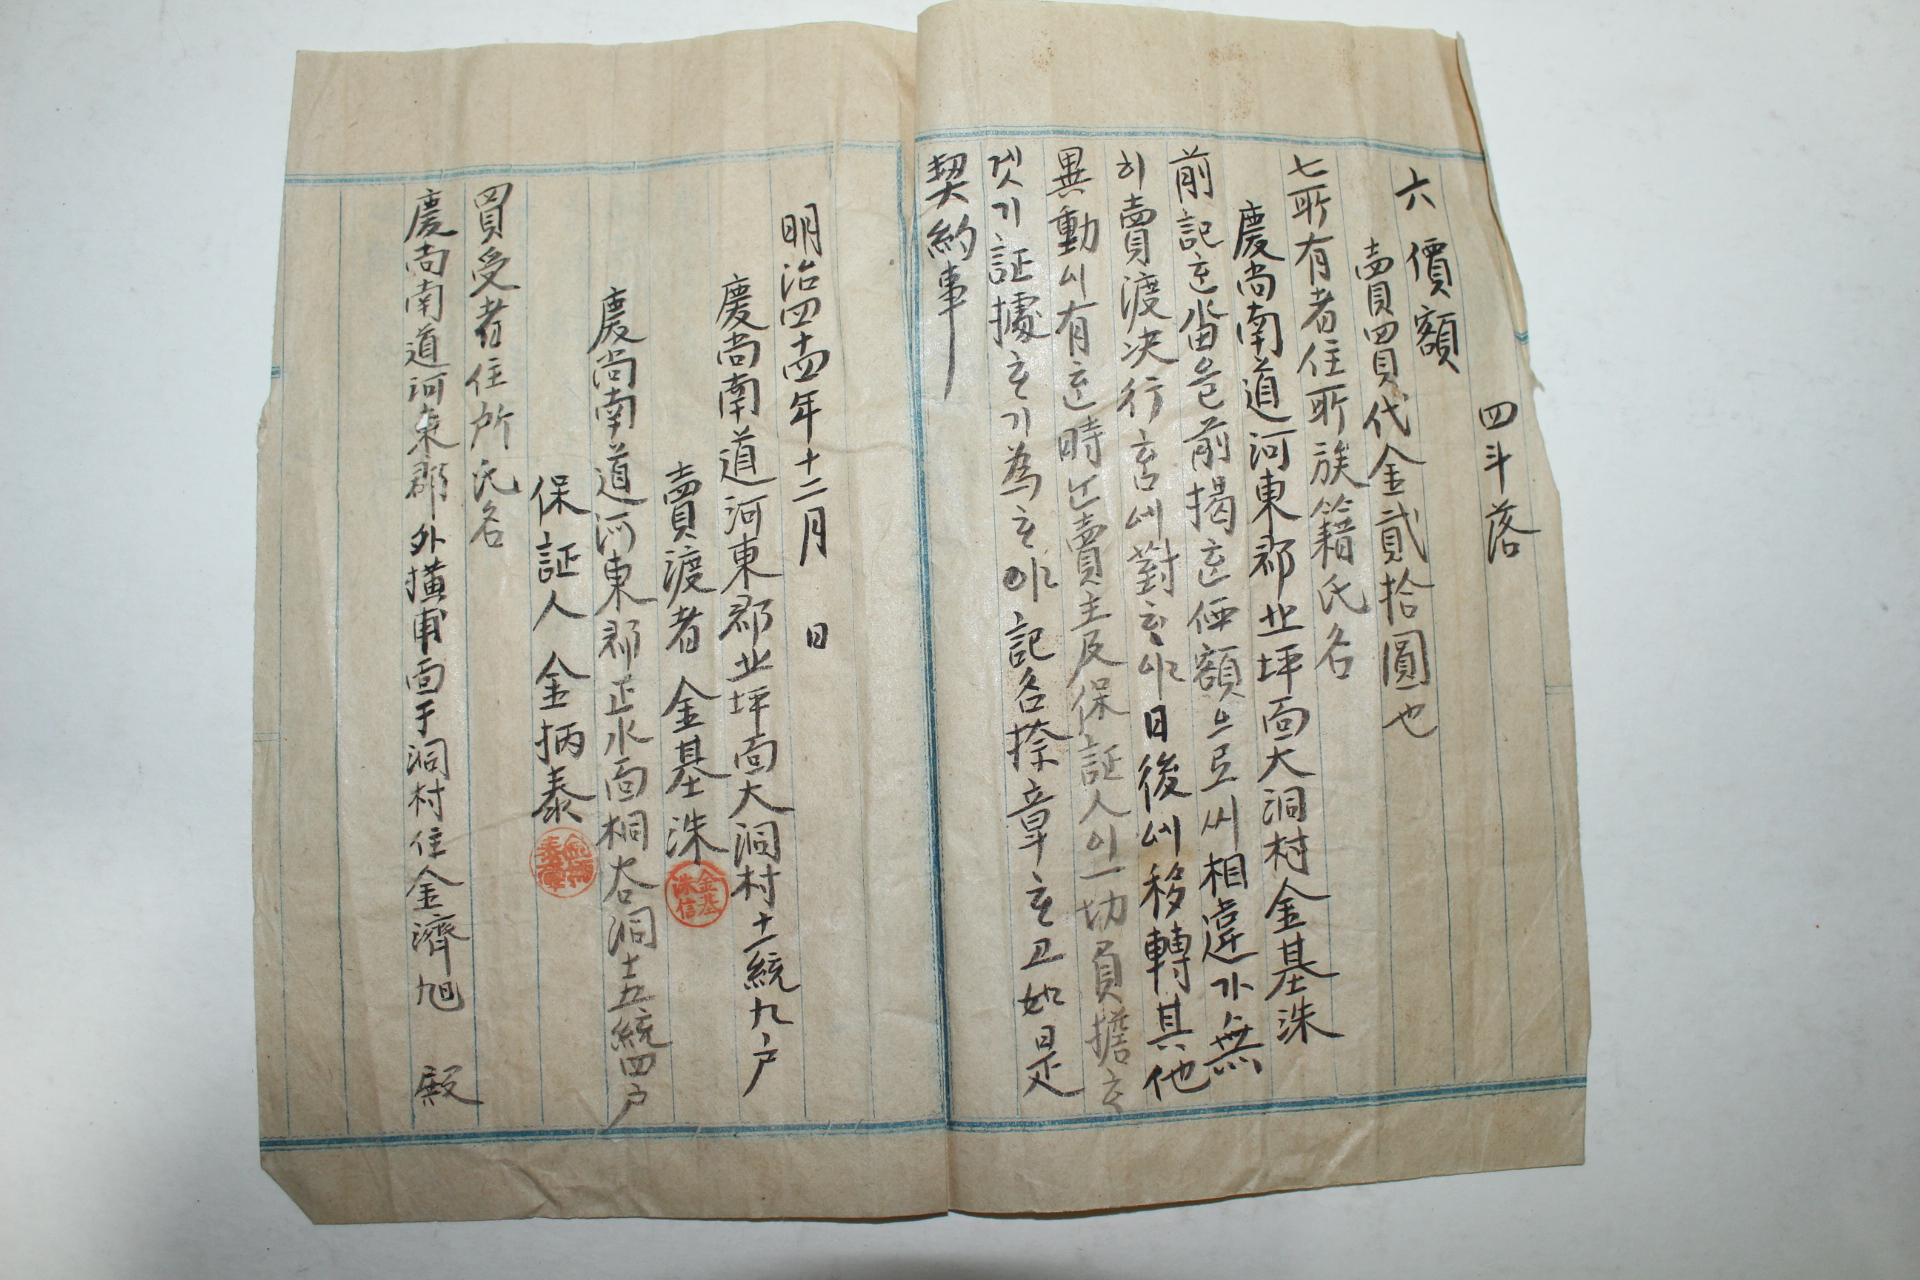 四斗落
六 價額
賣買代金貳拾圓也
七 所有者住所族籍氏名
慶尚南道河東郡北坪面大洞村金基洙
前記ᄒᆞᆫ畓은前揭ᄒᆞᆫ価額으로써相違가無
히賣渡決行ᄒᆞᆷ에對ᄒᆞ야日後에移轉其他
異動이有ᄒᆞᆫ時는賣主及保証人이一切負擔ᄒᆞ
겟기証據ᄒᆞ기為ᄒᆞ야記名捺章ᄒᆞ고如是
契約事
明治四十四年十二月 日
慶尚南道河東郡北坪面大洞村十一統九戶
賣渡者 金基洙
慶尚南道河東郡正水面桐谷洞十五統四戶
保証人 金柄泰
買受者住所氏名
慶尚南道河東郡外橫甫面于洞村住金濟旭 殿